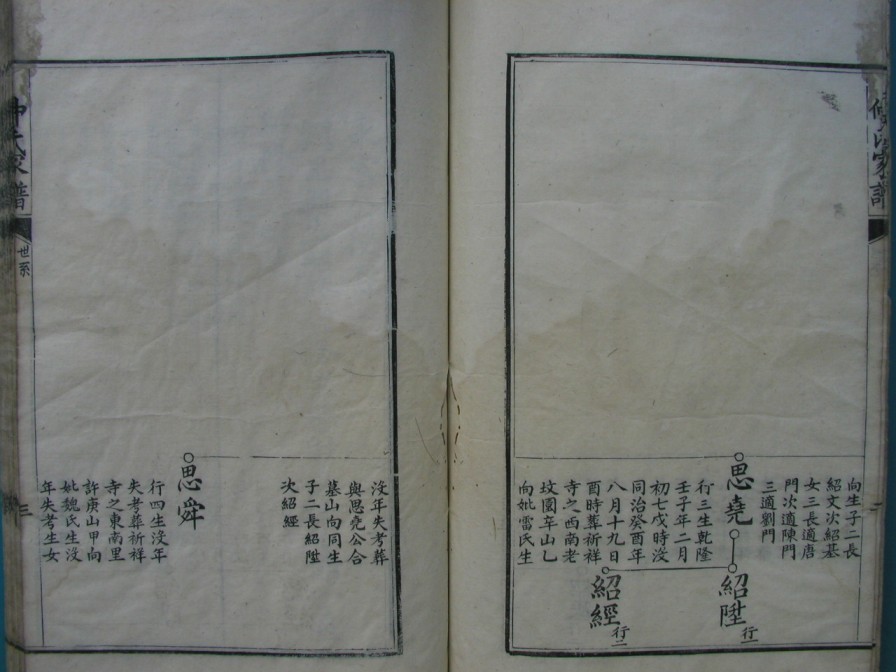 向生子二長
紹文次紹基
女三長適唐
門次適陳門
三適劉門
思堯
行三生乾隆
壬子年二月
初七戌時沒
同治癸酉年
八月十九日
酉時葬祈祥
寺之西南老
坟園辛山乙
向妣雷氏生
紹陞 行一
紹經 行二
沒年失考葬
與思堯公合
墓山向同生
子二長紹陞
次紹經
思舜
行四生沒年
失考葬祈祥
寺之東南里
許庚山甲向
妣魏氏生沒
年失考生女
氏家譜
世系
三